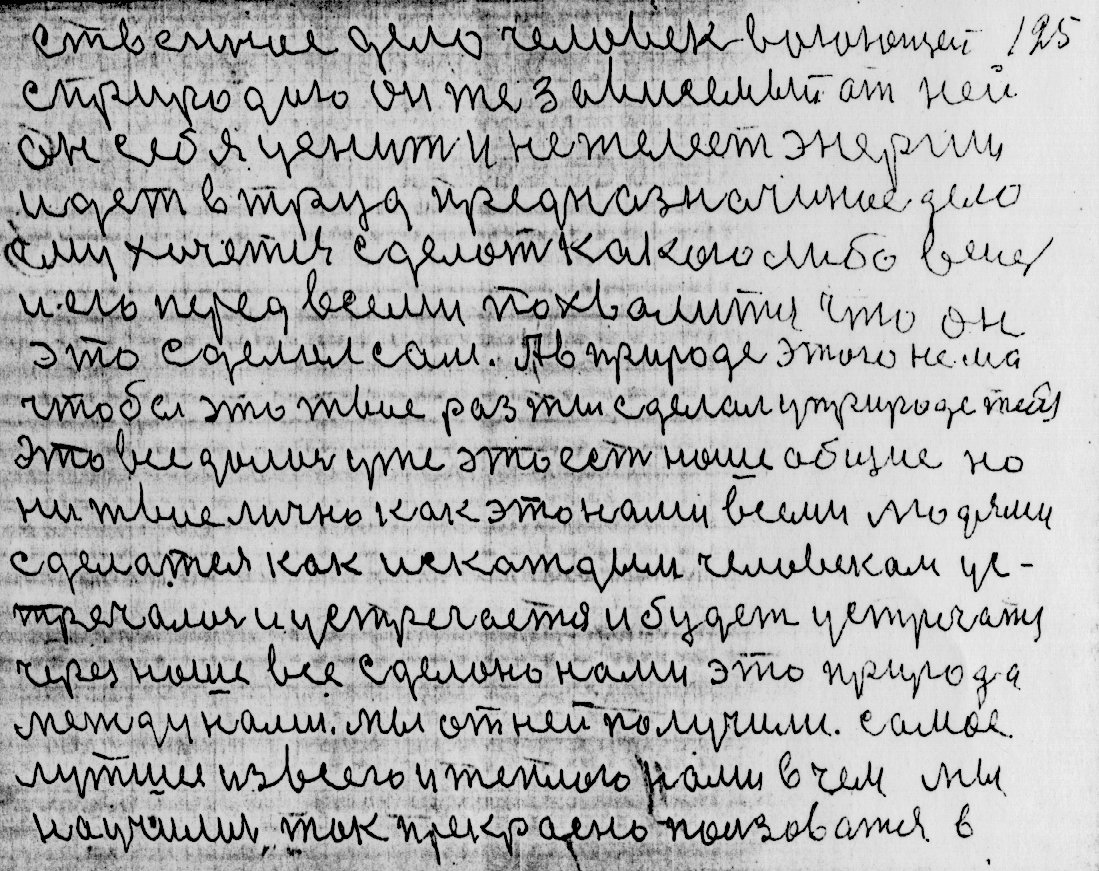 ственное дело человек воюющей 125
сприродою он же зависемый от ней
он себя ценит и нежелеет энергии
идет в труд предназначиное дело
ему хочется сделат какого либо
и его перед всеми похвалится что он
это сделил сам. А в природе этого нема
чтобы это твие раз ты сделал у природе тебя
Это все дался уже это ест наше общие но
ни твие лично как это нами всеми людями
сделатся как искаждым человекам ус-
тречался и устречается и будет устречатя
через наше все сделоно нами это природа
между нами. мы от ней получили. самое
лутшее из всего утеплого нами в чем мы
научился, так прекрасно ползоватя в